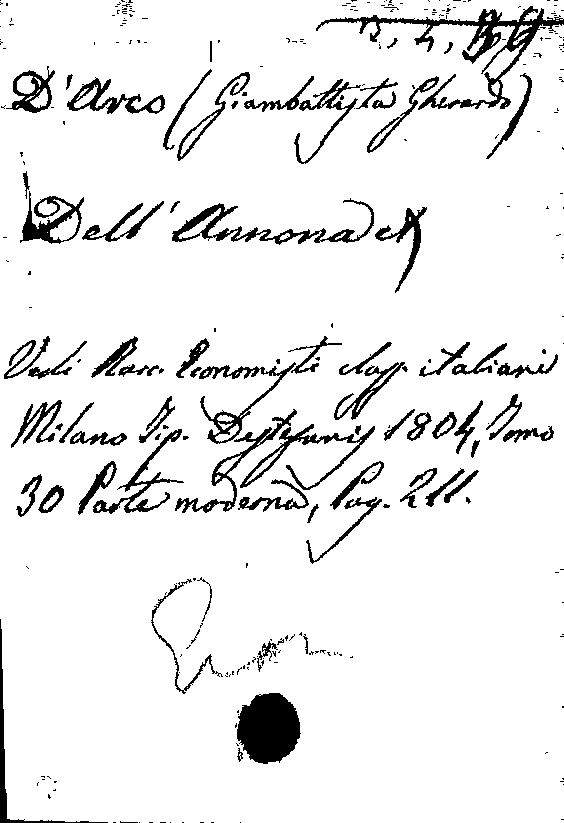 2, 4,
D'Arco (Giambattista Gherardo)
Dell'Annona
Vedi Racc. Economisti class. italiani
Milano Tip. Destefanis 1804, Tomo
30 Parte moderna, Pag. 211.